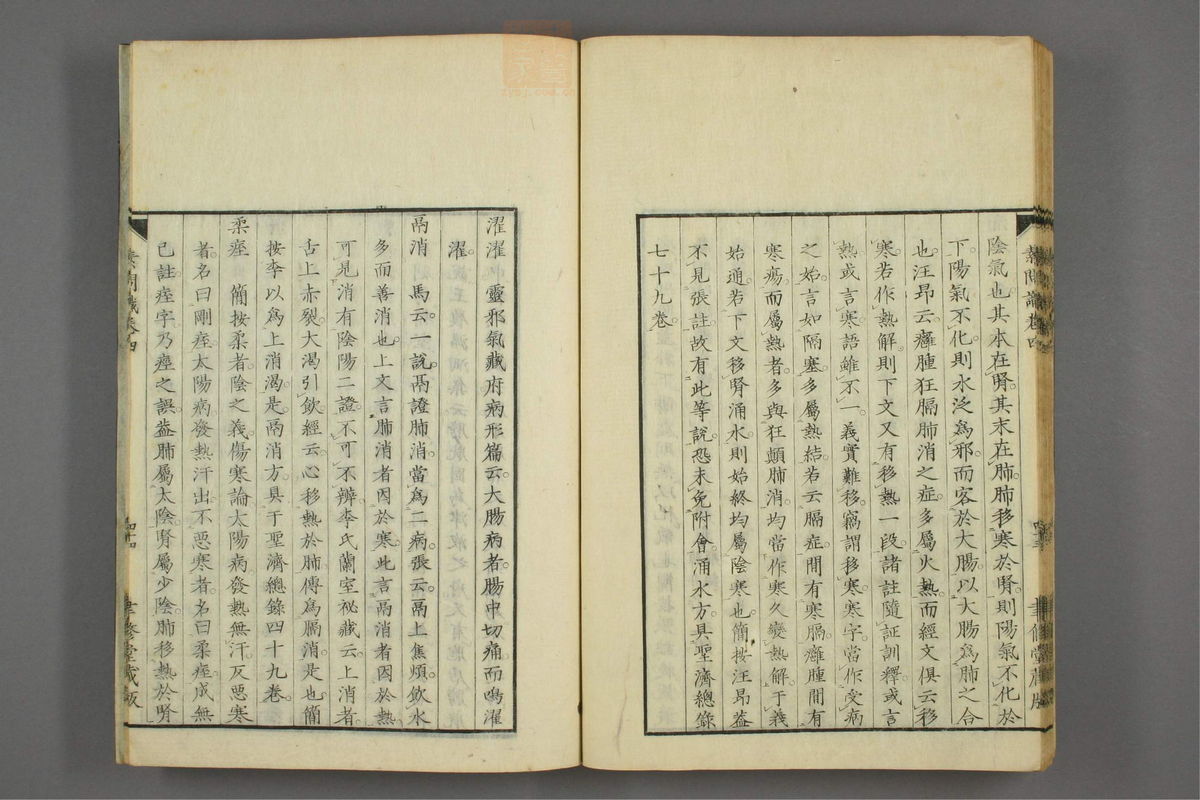 陰氣也其本在腎其末在肺肺移寒於腎則陽氣不化於
下陽氣不化則水泛爲邪而客於大腸以大腸爲肺之合
也汪昂云癰腫狂膈肺消之症多屬火熱而經文俱云移
寒若作熱解則下文又有移熱一段諸註隨証訓釋或言
熱或言寒語雖不一義實難移竊謂移寒寒字當作受病
之始言如隔塞多屬熱結若云膈症間有寒膈癰腫間有
寒瘍而屬熱者多與狂顛肺消均當作寒久變熱解于義
始通若下文移腎涌水則始終均屬陰寒也簡按汪昂蓋
不見張註故有此等說恐未免附會涌水方具聖濟總錄
七十九卷
素問識卷四
濯濯 靈邪氣藏府病形篇云大腸病者腸中切痛而鳴濯
濯
鬲消 馬云一說鬲證肺消當爲二病張云鬲上焦煩飮水
多而善消也上文言肺消者因於寒此言鬲消者因於熱
可見消有陰陽二證不可不辨李氏蘭室祕藏云上消者
舌上赤裂大渴引飮經云心移熱於肺傳爲膈消是也簡
按李以爲上消渴是鬲消方具于聖濟總錄四十九卷
柔痓 簡按柔者陰之義傷寒論太陽病發熱無汗反惡寒
者名曰剛痓太陽病發熱汗出不惡寒者名曰柔痓成無
已註痓字乃痙之誤蓋肺屬太陰腎屬少陰肺移熱於腎
素問識卷四
四十四
聿修堂藏版